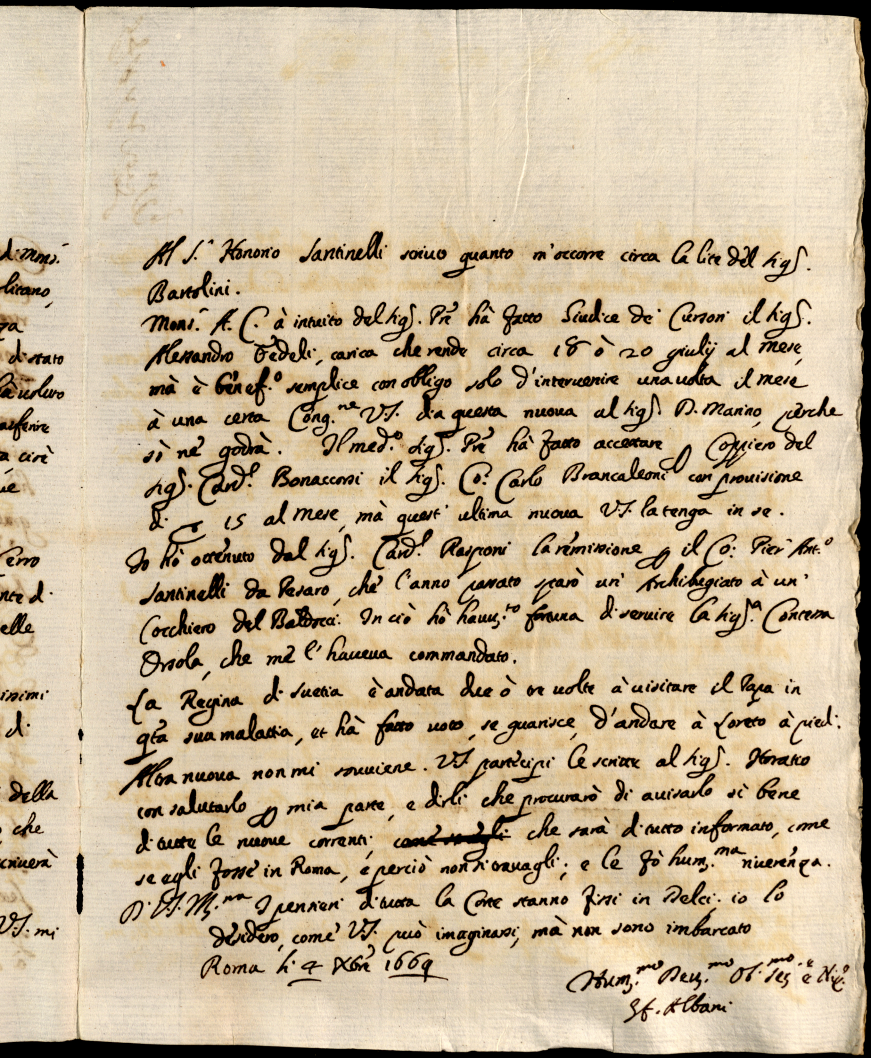 Al S.r Honorio Santinelli scrivo quanto m'occorre circa la lite del sig.r
Bartolini.
Mons.r A. C. à intuito del sig.r Prē hà fatto Giudice de' Cursori il sig.r
Alessandro Fedeli, carica che rende circa 18 ò 20 giulij al mese,
mà è benef.o semplice con obligo solo d'intervenire una volta il mese
à una certa Cong.ne VS. dia questa nuova al sig.r D. Marino, perche
sò ne godrà. Il med.o sig.r Prē hà fatto accettare p Coppiero del
sig.r Card.l Bonaccorsi il sig.r Co: Carlo Brancaleoni con provisione
di 15 al mese, mà quest' ultima nuova VS. la tenga in se.
Io hò ottenuto dal sig.r Card.l Rasponi la remissione p il Co: Pier Ant.o
Santinelli da Pesaro, che l'anno passato sparò un' Archibugiata à un'
Cocchiero del Baldocci. In ciò hò havu.to fortuna di servire la sig.ra Contessa
Orsola, che me l'haveva commandato.
La Regina di Suetia è andata due ò tre volte à visitare il Papa in
qta sua malattia, et hà fatto voto, se guarisce, d'andare à Loreto à piedi.
Altra nuova non mi souviene. VS partecipi le scritte al sig.r Horatio
con salutarlo p mia parte, e dirli che procurarò di avisarlo si bene
di tutte le nuove correnti, che sarà di tutto informato, come
se egli fosse in Roma, e perciò non si travagli; e le fò hum.ma riverenza.
D. VS. Ill.ma I pensieri di tutta la Corte stanno fissi in Delci. io lo
desidero, come VS. può imaginarsi, mà non sono imbarcato
Roma li 4 Xbre 1669
Hum.mo Dev.mo Ob. Ser.e e Nip.
Gf. Albani
d. mons.r
olitano,
di stato
asferire
Cerro
nte d.
elle
issimi
di
della
che
scriverà
VS. mi